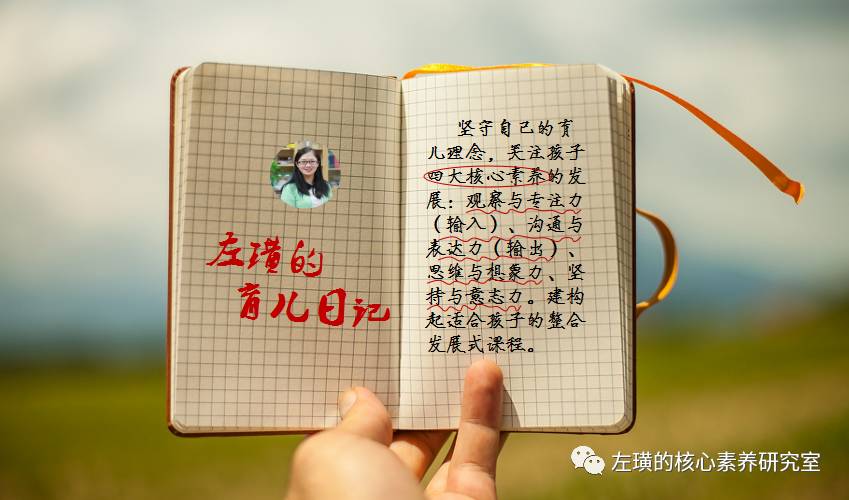 左璜的
育儿日记
坚守自己的育
儿理念，关注孩子
四大核心素养的发
展：观察与专注力
（输入）、沟通与
表达力（输出）、
思维与想象力、坚
持与意志力。建构
起适合孩子的整合
发展式课程。
左璜的核心素养研究室